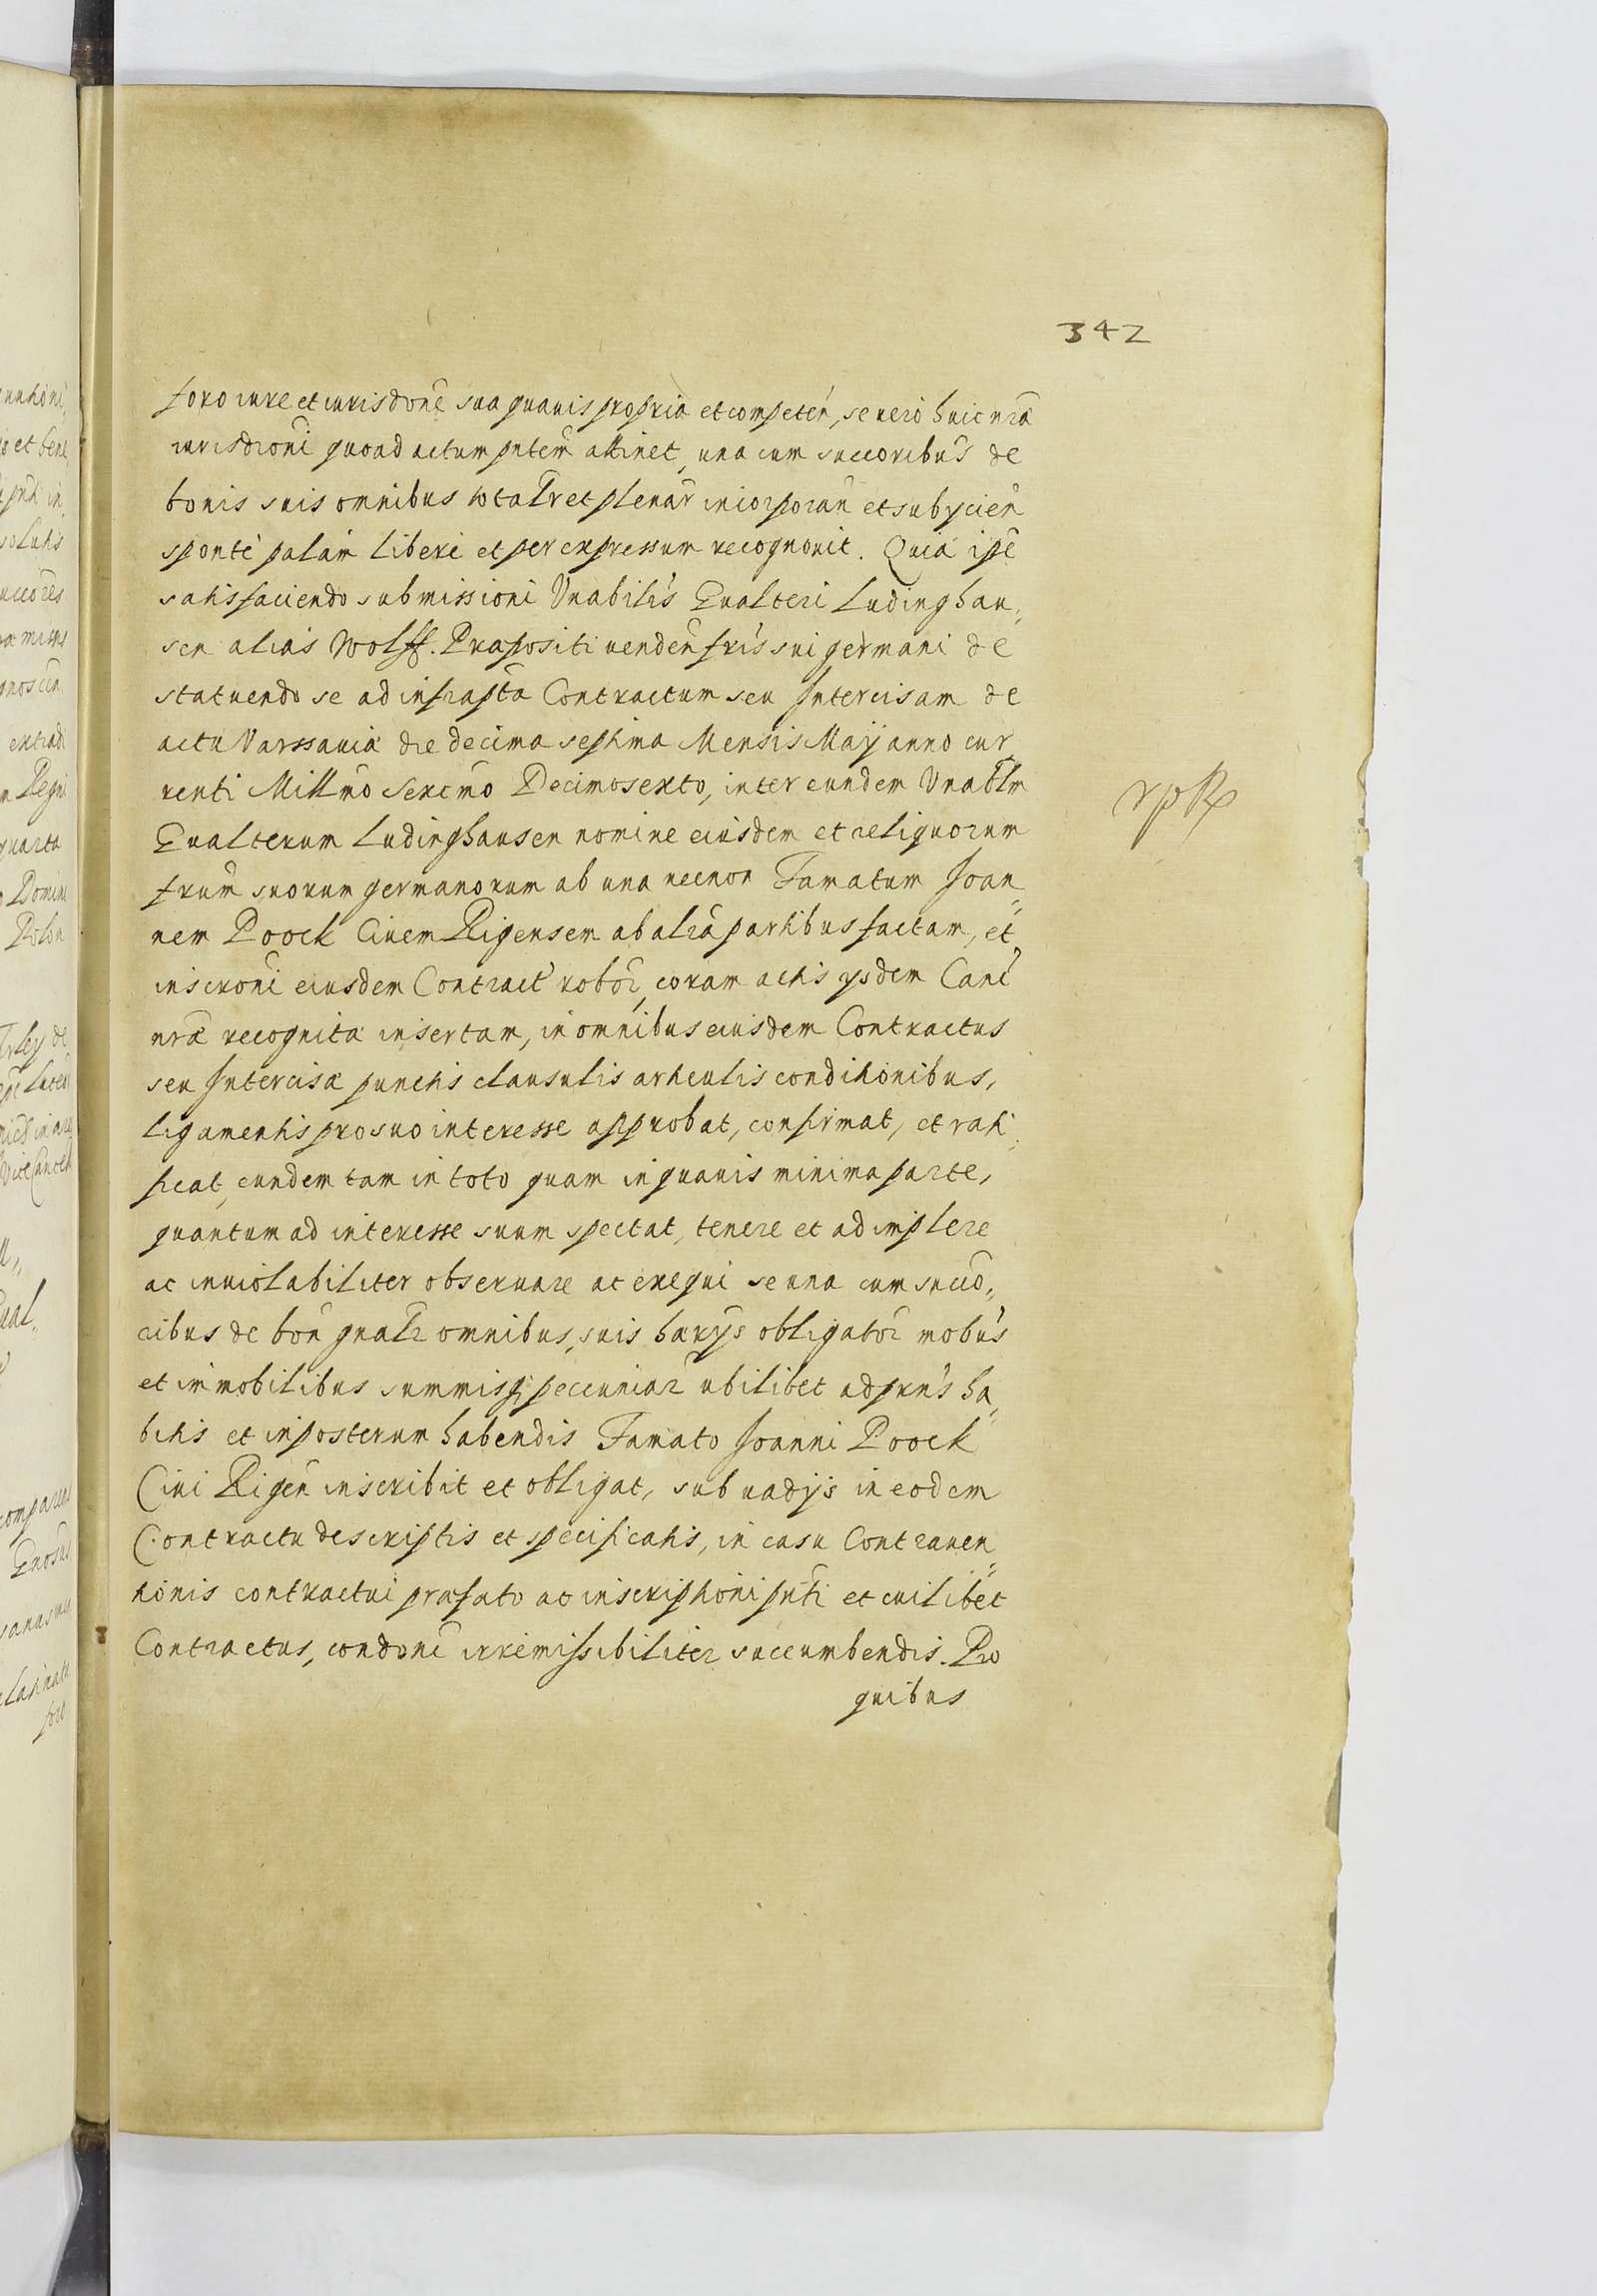 342
foro iure et iurisdone sua quauis propria et competen, se vero huic nrã
iurisdioni quoad actum pntem attinet, una cum succoribus de
bonis suis omnibus totalr et plenar incorporan et subycien
sponte palam libere et per expressum recognouit. Quia ipse
satisfaciendo submissioni Vnabilis Eualteri Ludinghau,
sen alias Wolff. Præpositi venden fris sui germani de
statuendo se ad infrapta Contractum seu Intercisam de
actu Varssauiæ die decima septima Mensis Maij anno cur
renti Millmo Sexcmo Decimosexto, inter eundem Vnablm
Eualterum Ludinghausen nomine eiusdem et reliquorum
frum suorum germanorum ab una necnon Famatum Joan„
nem Poock Ciuem Rigensem ab alia partibus factam, et
inscroni eiusdem Contract robor, coram actis ysdem Canc
nræ recognita insertam, in omnibus eiusdem Contractus
seu Intercisæ punctis clausulis articulis conditionibus,
ligamentis pro suo interesse approbat, confirmat, et rati
ficat, eundem tam in toto quam in quauis minima parte,
quantum ad interesse suum spectat, tenere et adimplere
ac inuiolabiliter obseruare ac exequi se una cum succo„
ribus de bon gnalr omnibus, suis hærys obligator mobus
et immobilibus summisq pecuniar ubilibet ad prns ha„
bitis et inposterum habendis Famato Joanni Poock
Ciui Rigen inscribit et obligat, sub vadijs in eodem
Contractu descriptis et specificatis, in casu Contrauen„
tionis contractui præfato ac inscriptioni pnti et cuilibet
Contractus, condoni irremissibiliter succumbendis. Pro
quibus